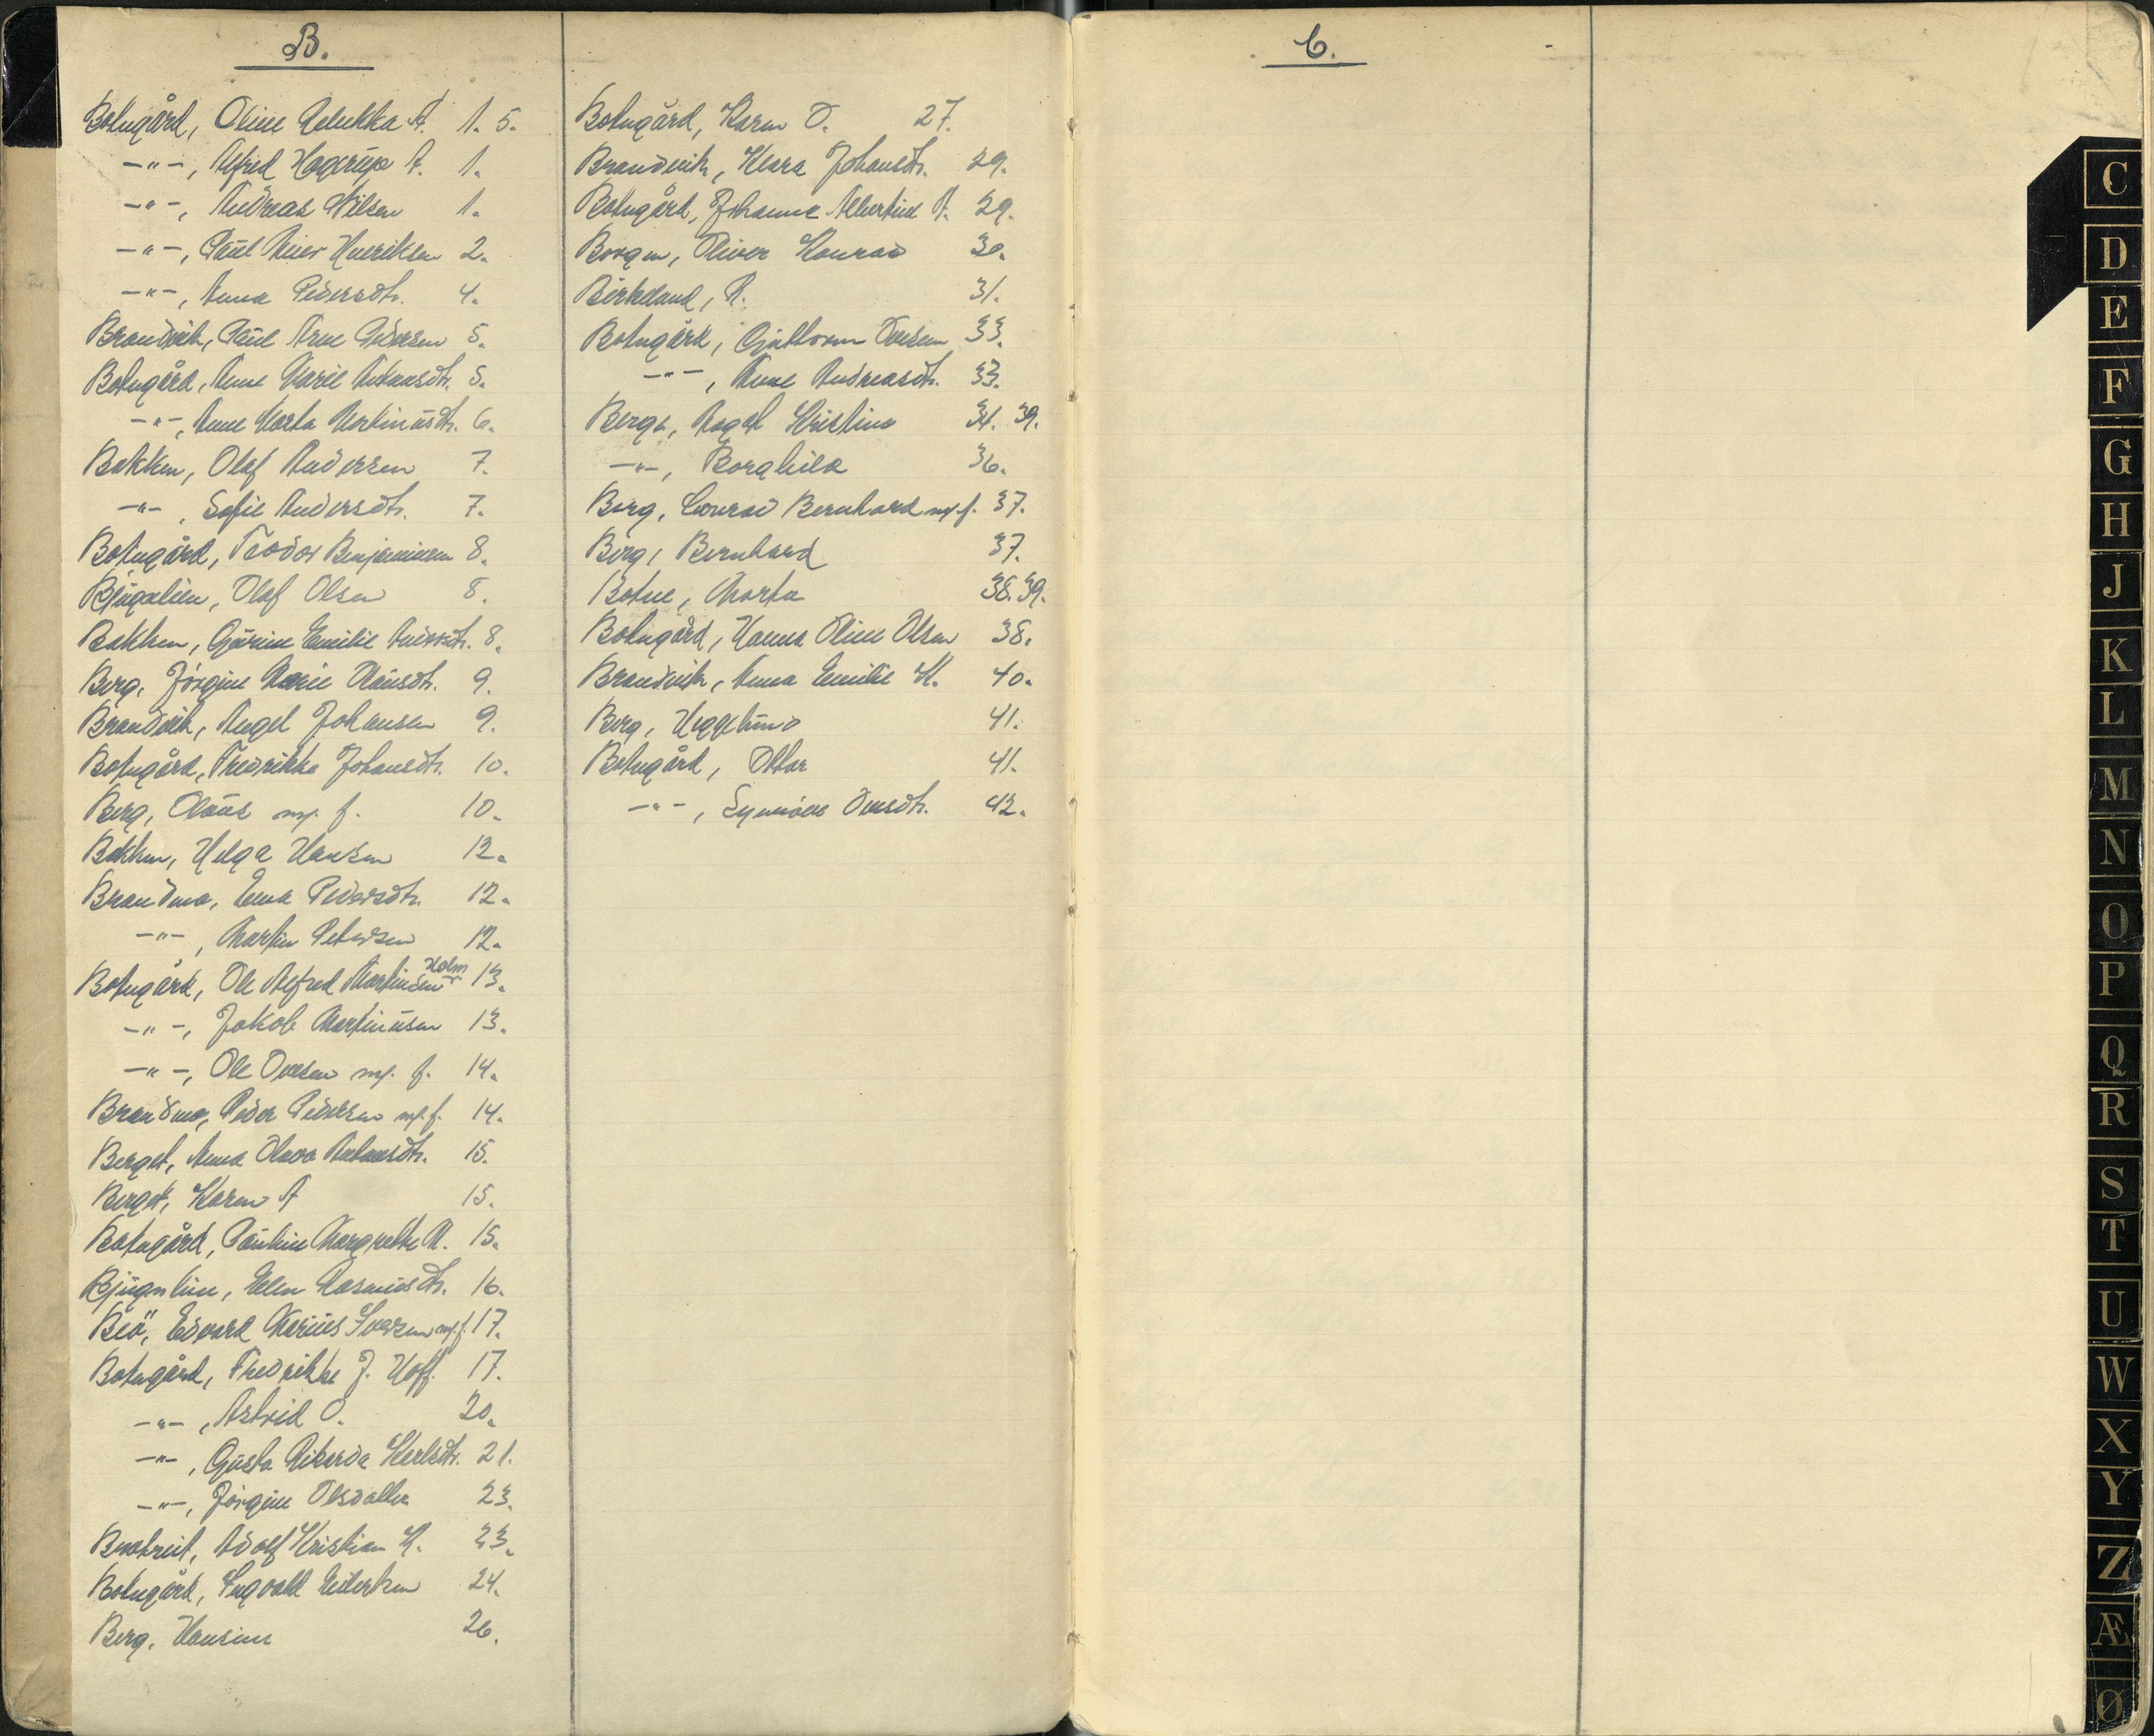 B.
Botngård, Oline Rebekka A. 1. 5.
-"-, Alfred Hagerup A. 1.
-"-, Andreas Nilsen 1.
-"-, Paul Einer Henriksen 2.
-"-, Anna Pedersdtr. 4.
Brandvik, Paul Arne Pedersen 5.
Botngård, Anne Marie Antonsdtr. 5.
-"-, Anne Marta Martinusdtr. 6.
Bakken, Olaf Andersen 7.
-"-, Sofie Andersdtr. 7.
Botngård, Teodor Benjaminsen 8.
Bjugnlien, Olaf Olsen 8.
Bakken, Gurine Emilie Andersdtr. 8.
Berg, Jörgine Marie Olausdtr. 9.
Brandvik, Angel Johansen 9.
Botngård, Fredrikke Johansdtr. 10.
Berg, Olaus m. f. 10.
Bakken, Helga Hansen 12.
Brandmo, Enna Pedersdtr. 12.
-"-, Martin Petersen 12.
Botngård, Ole Alfred Martinsen Holm 13.
-"-, Jakob Martinusen 13.
-"-, Ole Ovesen m. f. 14.
Brandmo, Peder Pedersen m. f. 14.
Berget, Anna Olava Antonsdtr. 15.
Berget, Karen A 15.
Botngård, Pauline Margrethe N. 15.
Bjugnlien, Elen Rasmusdtr. 16.
Beö, Edvard Marius Iversen m. f. 17.
Botngård, Fredrikke J. Hoff. 17.
-"-, Astrid O. 20.
-"-, Gusta Rikarda Karlsdtr. 21.
-"-, Jörgine Olsdatter 23.
Adolf Kristian H. 23.
Botngård, Ingvald Eilertsen 24.
Berg, Hansine 26.
Botngård, Karen O. 27.
Brandvik, Klara Johansdtr. 29.
Botngård, Johanna Albertine A. 29.
Borgen, Oliver Konrad 30.
Birkeland, R. 31.
Botngård, Guttorm Ovesen 33.
-"-, Anne Andreasdtr. 33.
Berge, Aagot Kristine 34. 39.
-"-, Borghild 36.
Berg, Conrad Bernhard m. f. 37.
Berg, Bernhard 37.
Botne, Marta 38. 39.
Botngård, Hanna Oline Olsen 38.
Brandvik, Anna Emilie K. 40.
Berg, Heggelund 41.
Botngård, Ottar 41.
-"-, Synnöve Ovesdtr. 42.
C.
C
D
E
F
G
H
J
K
L
M
N
O
P
Q
R
S
T
U
W
X
Y
Z
Æ
Ø